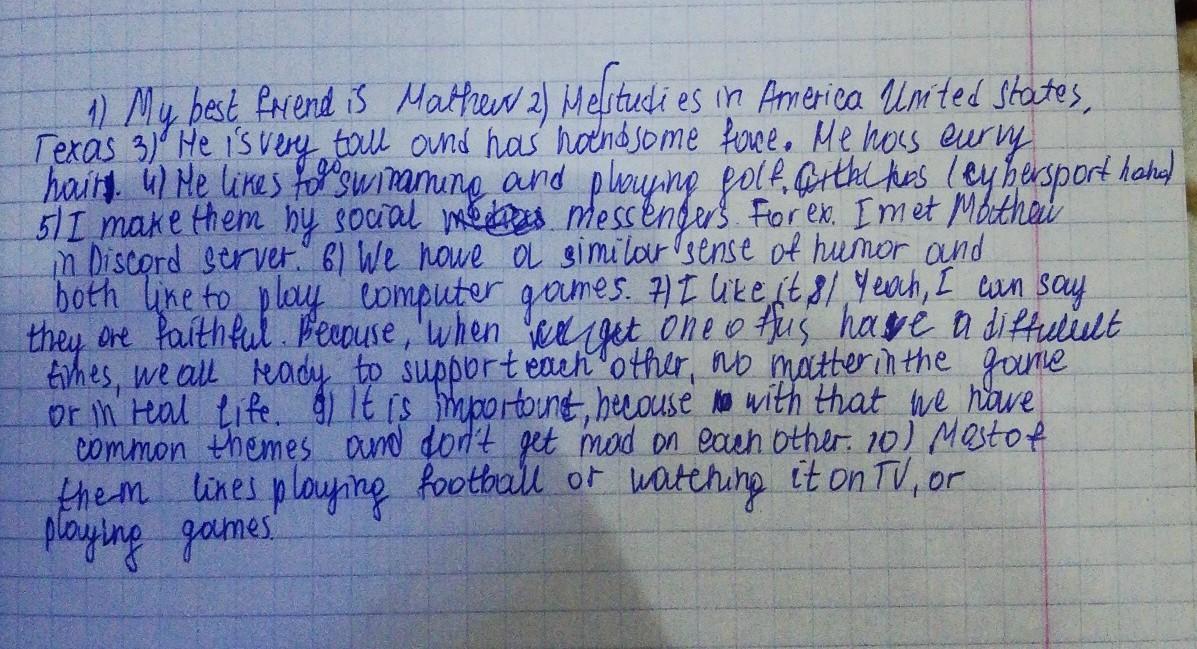 1) My best friend is Mathew 2) He studies in America United States,
Texas 3) He is very tall and has handsome face. He has curvy
hair. 4) He likes to go swimming and playing golf. (cybersport
5) I make them by social messengers. For ex. I met Mathew
in Discord server. 6) We have a similar sense of humor and
both like to play computer games. 7) I like it 8) Yeah, I can say
they are faithful. Because, when get one of us have a difficult
times, we all ready to support each other, no matter in the game
or in real life. 9) It is important, because with that we have
common themes and don't get mad on each other. 10) Most of
them likes playing football or watching it on TV, or
playing games.